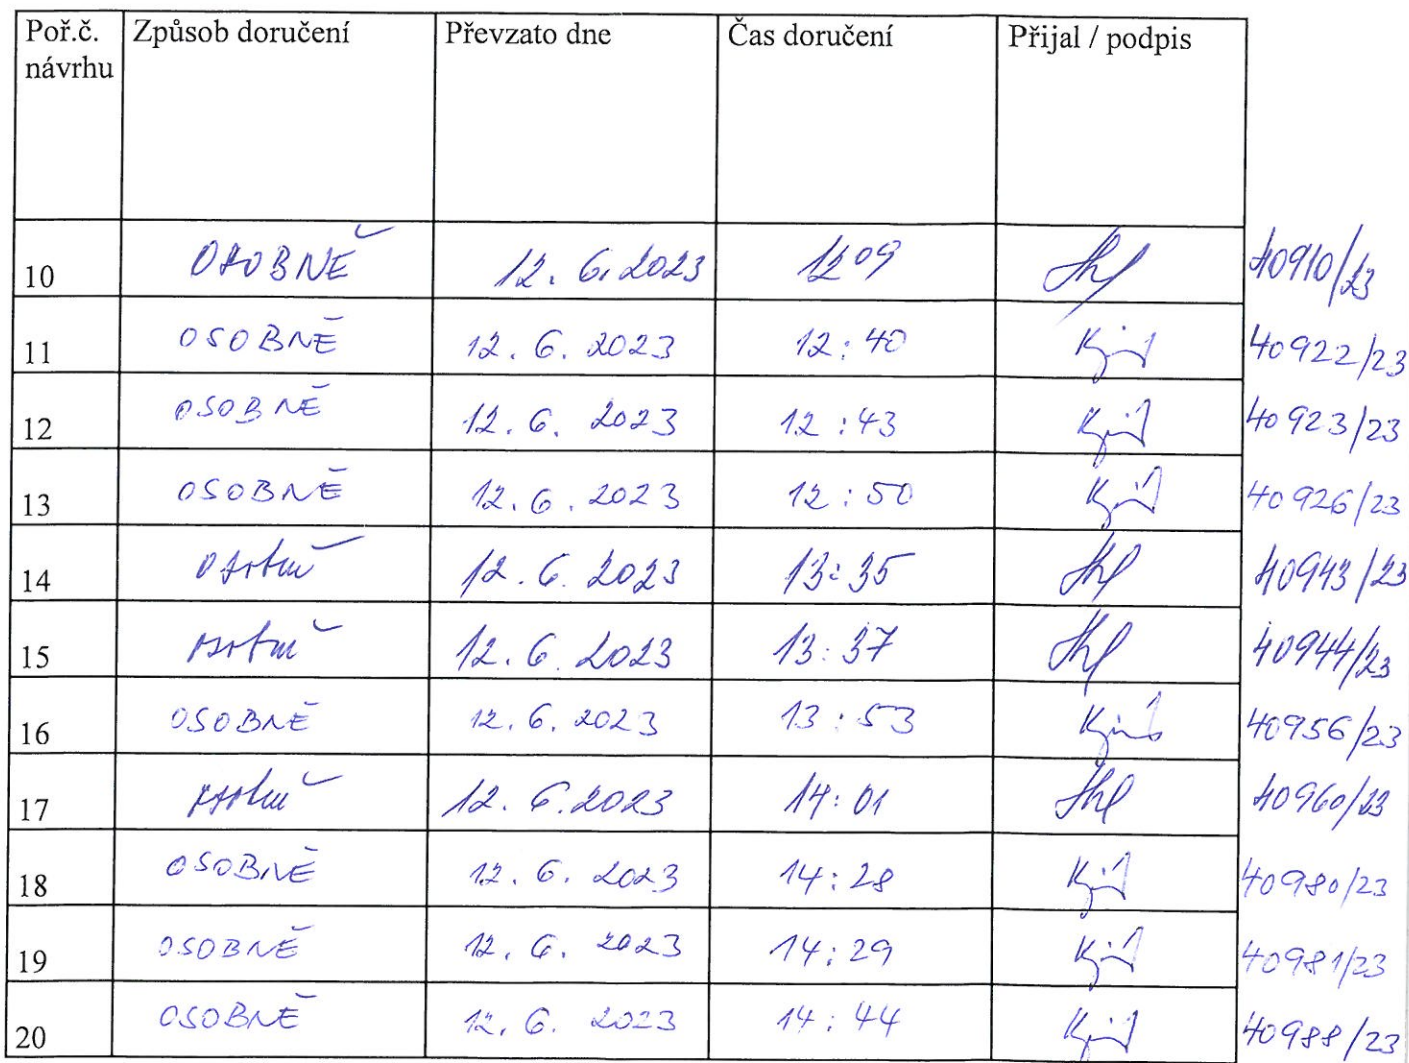 Poř.č. návrhu Způsob doručení Převzato dne Čas doručení Přijal / podpis
10 OSOBNĚ 12. 6. 2023 1209 40910/23
11 OSOBNĚ 12. 6. 2023 12:40 40922/23
12 OSOBNĚ 12. 6. 2023 12:43 40923/23
13 OSOBNĚ 12. 6. 2023 12:50 40926/23
14 osobně 12. 6. 2023 13:35 40943/23
15 osobně 12. 6. 2023 13:37 40944/23
16 OSOBNĚ 12. 6. 2023 13:53 40956/23
17 osobně 12. 6. 2023 14:01 40960/23
18 OSOBNĚ 12. 6. 2023 14:28 40980/23
19 OSOBNĚ 12. 6. 2023 14:29 40981/23
20 OSOBNĚ 12. 6. 2023 14:44 40988/23